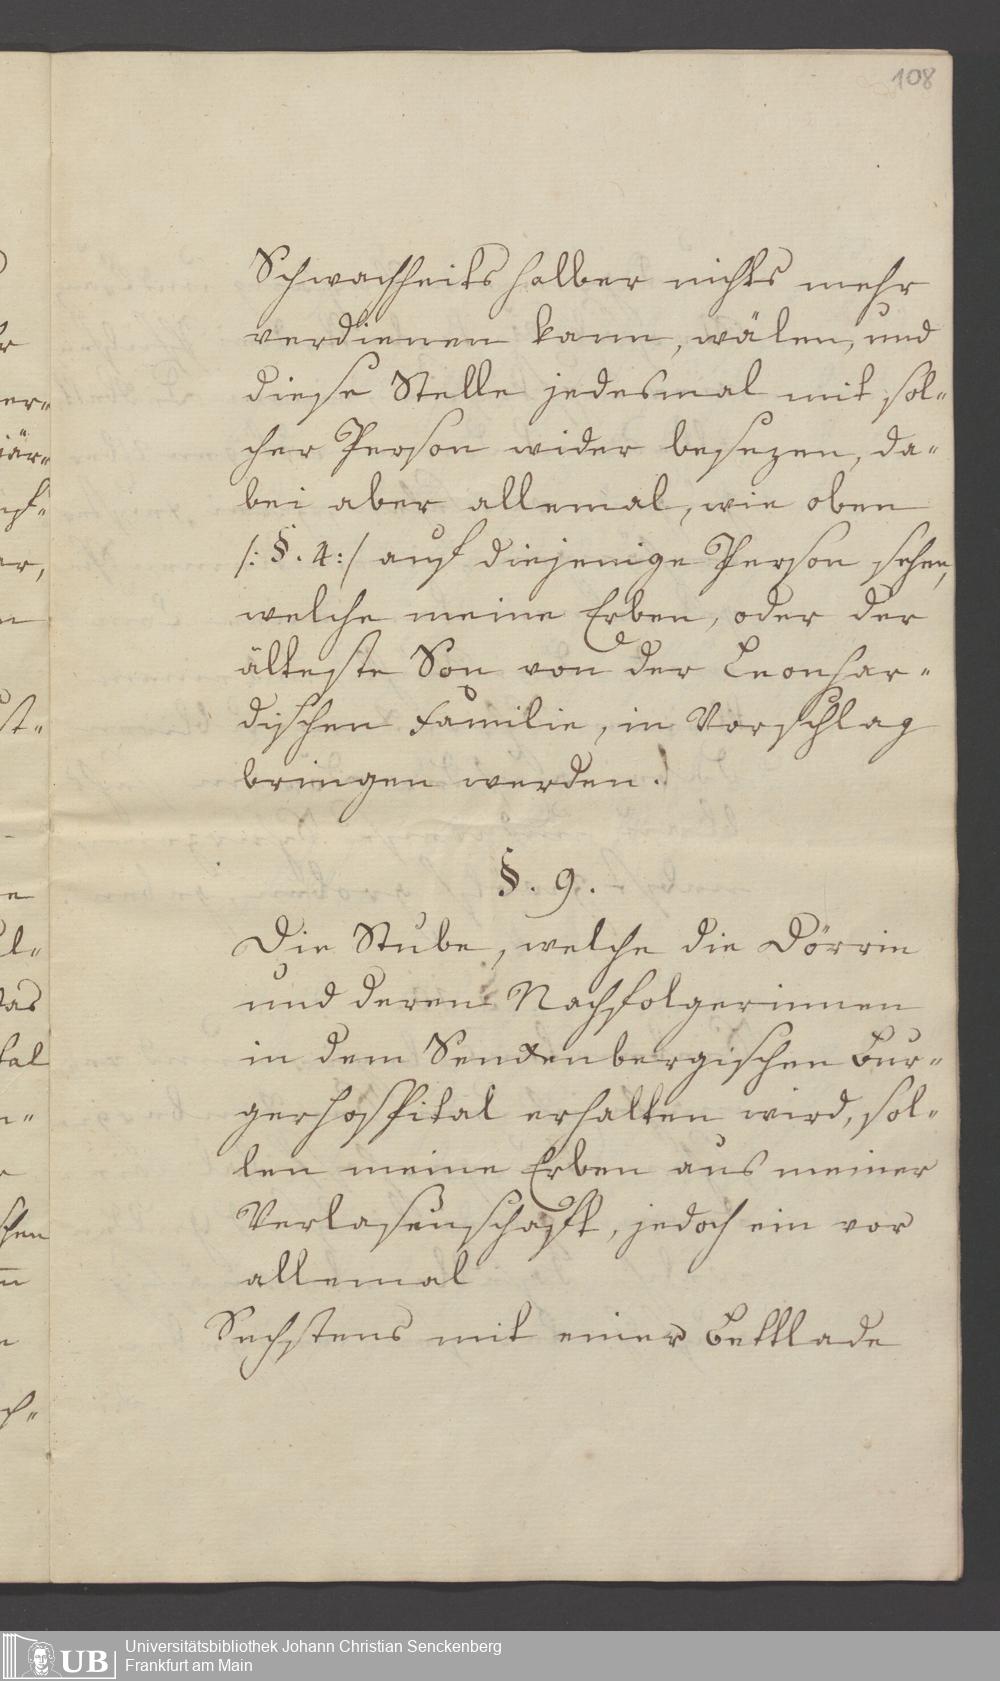 108
Schwachheits halber nichts mehr
verdienen kann, wälen, und
diese Stelle jedesmal mit sol-
cher Person wider besezen, da-
bei aber allemal, wie oben
/: §. 4 :/ auf diejenige Person sehen,
welche meine Erben, oder der
älteste Son von der Leonhar-
dischen Familie, in Vorschlag
bringen werden.
§. 9.
Die Stube, welche die Dörrin
und deren Nachfolgerinnen
in dem Senckenbergischen Bur-
gerhospital erhalten wird, sol-
len meine Erben aus meiner
Verlasenschaft, jedoch ein vor
allemal
Sechstens mit einer Bettlade
UB
Universitätsbibliothek Johann Christian Senckenberg
Frankfurt am Main